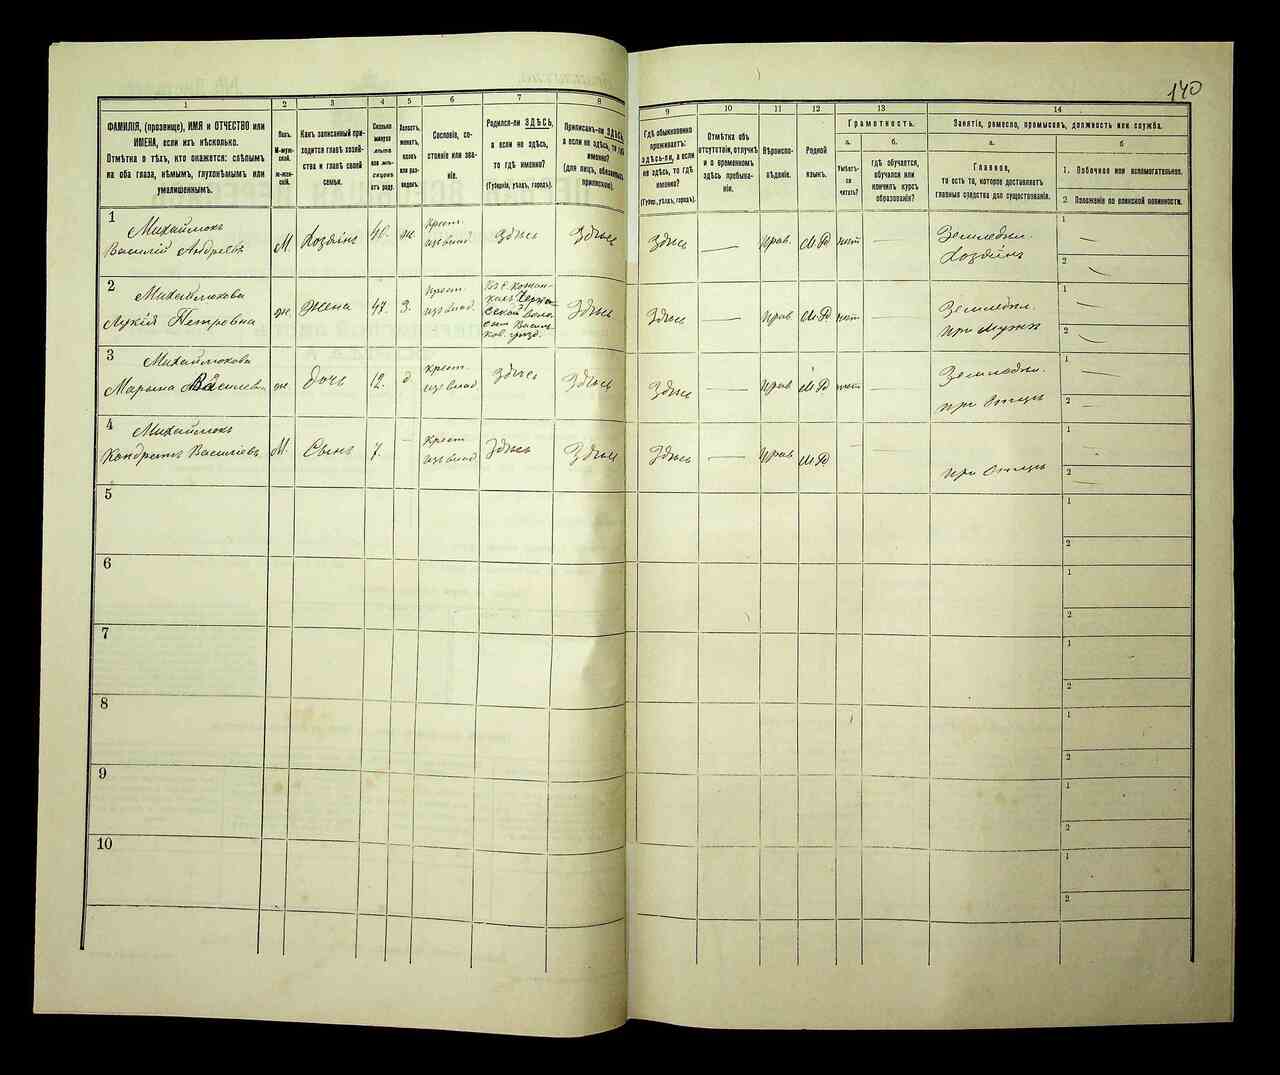 140
1
2
3
4
5
6
7
8
9
10
11
12
13
14
ФАМИЛІЯ, (прозвище), ИМЯ и ОТЧЕСТВО или
ИМЕНА, если ихъ нѣсколько.
Отмѣтка о тѣхъ, кто окажется: слѣпымъ
на оба глаза, нѣмымъ, глухонѣмымъ или
умалишеннымъ.
Полъ.
М-муж-
ской.
ж-жен-
скій.
Какъ записанный при-
ходится главѣ хозяй-
ства и главѣ своей
семьи.
Сколько
минуло
лѣтъ
или мѣ-
сяцевъ
отъ роду.
Холостъ,
женатъ,
вдовъ
или раз-
веденъ.
Сословіе, со-
стояніе или зва-
ніе.
Родился-ли ЗДѢСЬ,
а если не здѣсь,
то гдѣ именно?
(Губернія, уѣздъ, городъ).
Приписанъ-ли ЗДѢСЬ,
а если не здѣсь, то гдѣ
именно?
(для лицъ, обязанныхъ
припискою).
Гдѣ обыкновенно
проживаетъ:
ЗДѢСЬ-ли, а если
не здѣсь, то гдѣ
именно?
(Губер., уѣздъ, городъ).
Отмѣтка объ
отсутствіи, отлучкѣ
и о временномъ
здѣсь пребыва-
ніи.
Вѣроиспо-
вѣданіе.
Родной
языкъ.
Грамотность.
а.
б.
Умѣетъ-
ли
читать?
гдѣ обучается,
обучался или
кончилъ курсъ
образованія?
Занятіе, ремесло, промыселъ, должность или служба.
а.
б
Главное,
то есть то, которое доставляетъ
главныя средства для существованія.
1. Побочное или вспомогательное.
2. Положеніе по воинской повинности.
1
Михайлюкъ
Василій Андреевъ
М. Хозяинъ
ж.
Крест.
изъ влад.
Здѣсь
Здѣсь
Здѣсь
—
Прав.
нѣтъ
—
Земледѣл.
Хозяинъ
1
—
2
—
2
Михайлюкова
Лукія Петровна
ж. Жена 47. З.
Крест.
изъ влад.
Здѣсь
Здѣсь
—
Прав
нѣтъ
—
Земледѣл.
при мужѣ
1
—
2
—
3
Михайлюкова
Марына
ж. дочь 12. д
крест.
изъ влад.
Здѣсь
Здѣсь
Здѣсь
—
Прав
нѣтъ
—
Земледѣл.
при Отцѣ
1
—
2
—
4
Михайлюкъ
Кондратъ Васильевъ
М. Сынъ 7. —
крест
изъ влад.
Здѣсь
Здѣсь
Здѣсь
—
Прав
—
—
при Отцѣ
1
—
2
—
5
1
2
6
1
2
7
1
2
8
1
2
9
1
2
10
1
2